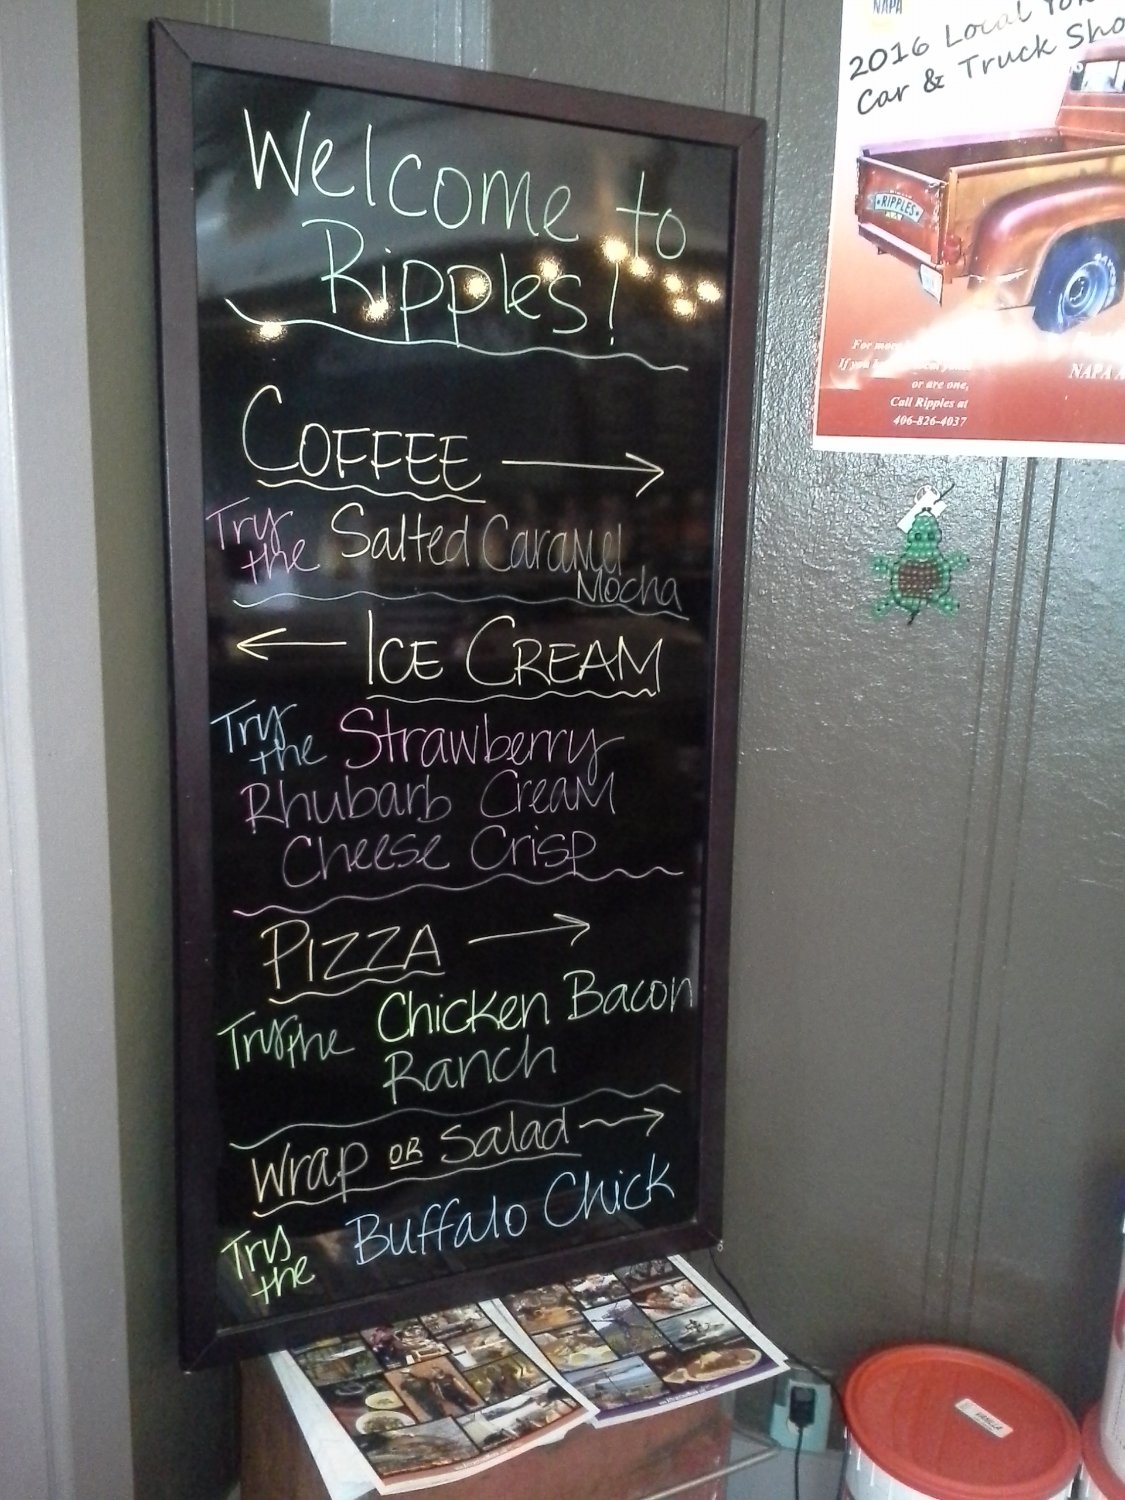 Welcome to
Ripples!
COFFEE
Try the Salted Caramel
Mocha
ICE CREAM
Try the Strawberry
Rhubarb Cream
Cheese Crisp
PIZZA
Try the Chicken Bacon
Ranch
Wrap OR Salad
Try the Buffalo Chick
NAPA
2016 Local
Car & Truck Sho
RIPPLES
For
If you
or are one,
Call Ripples at
406-826-4037
NAPA A
VANILLA